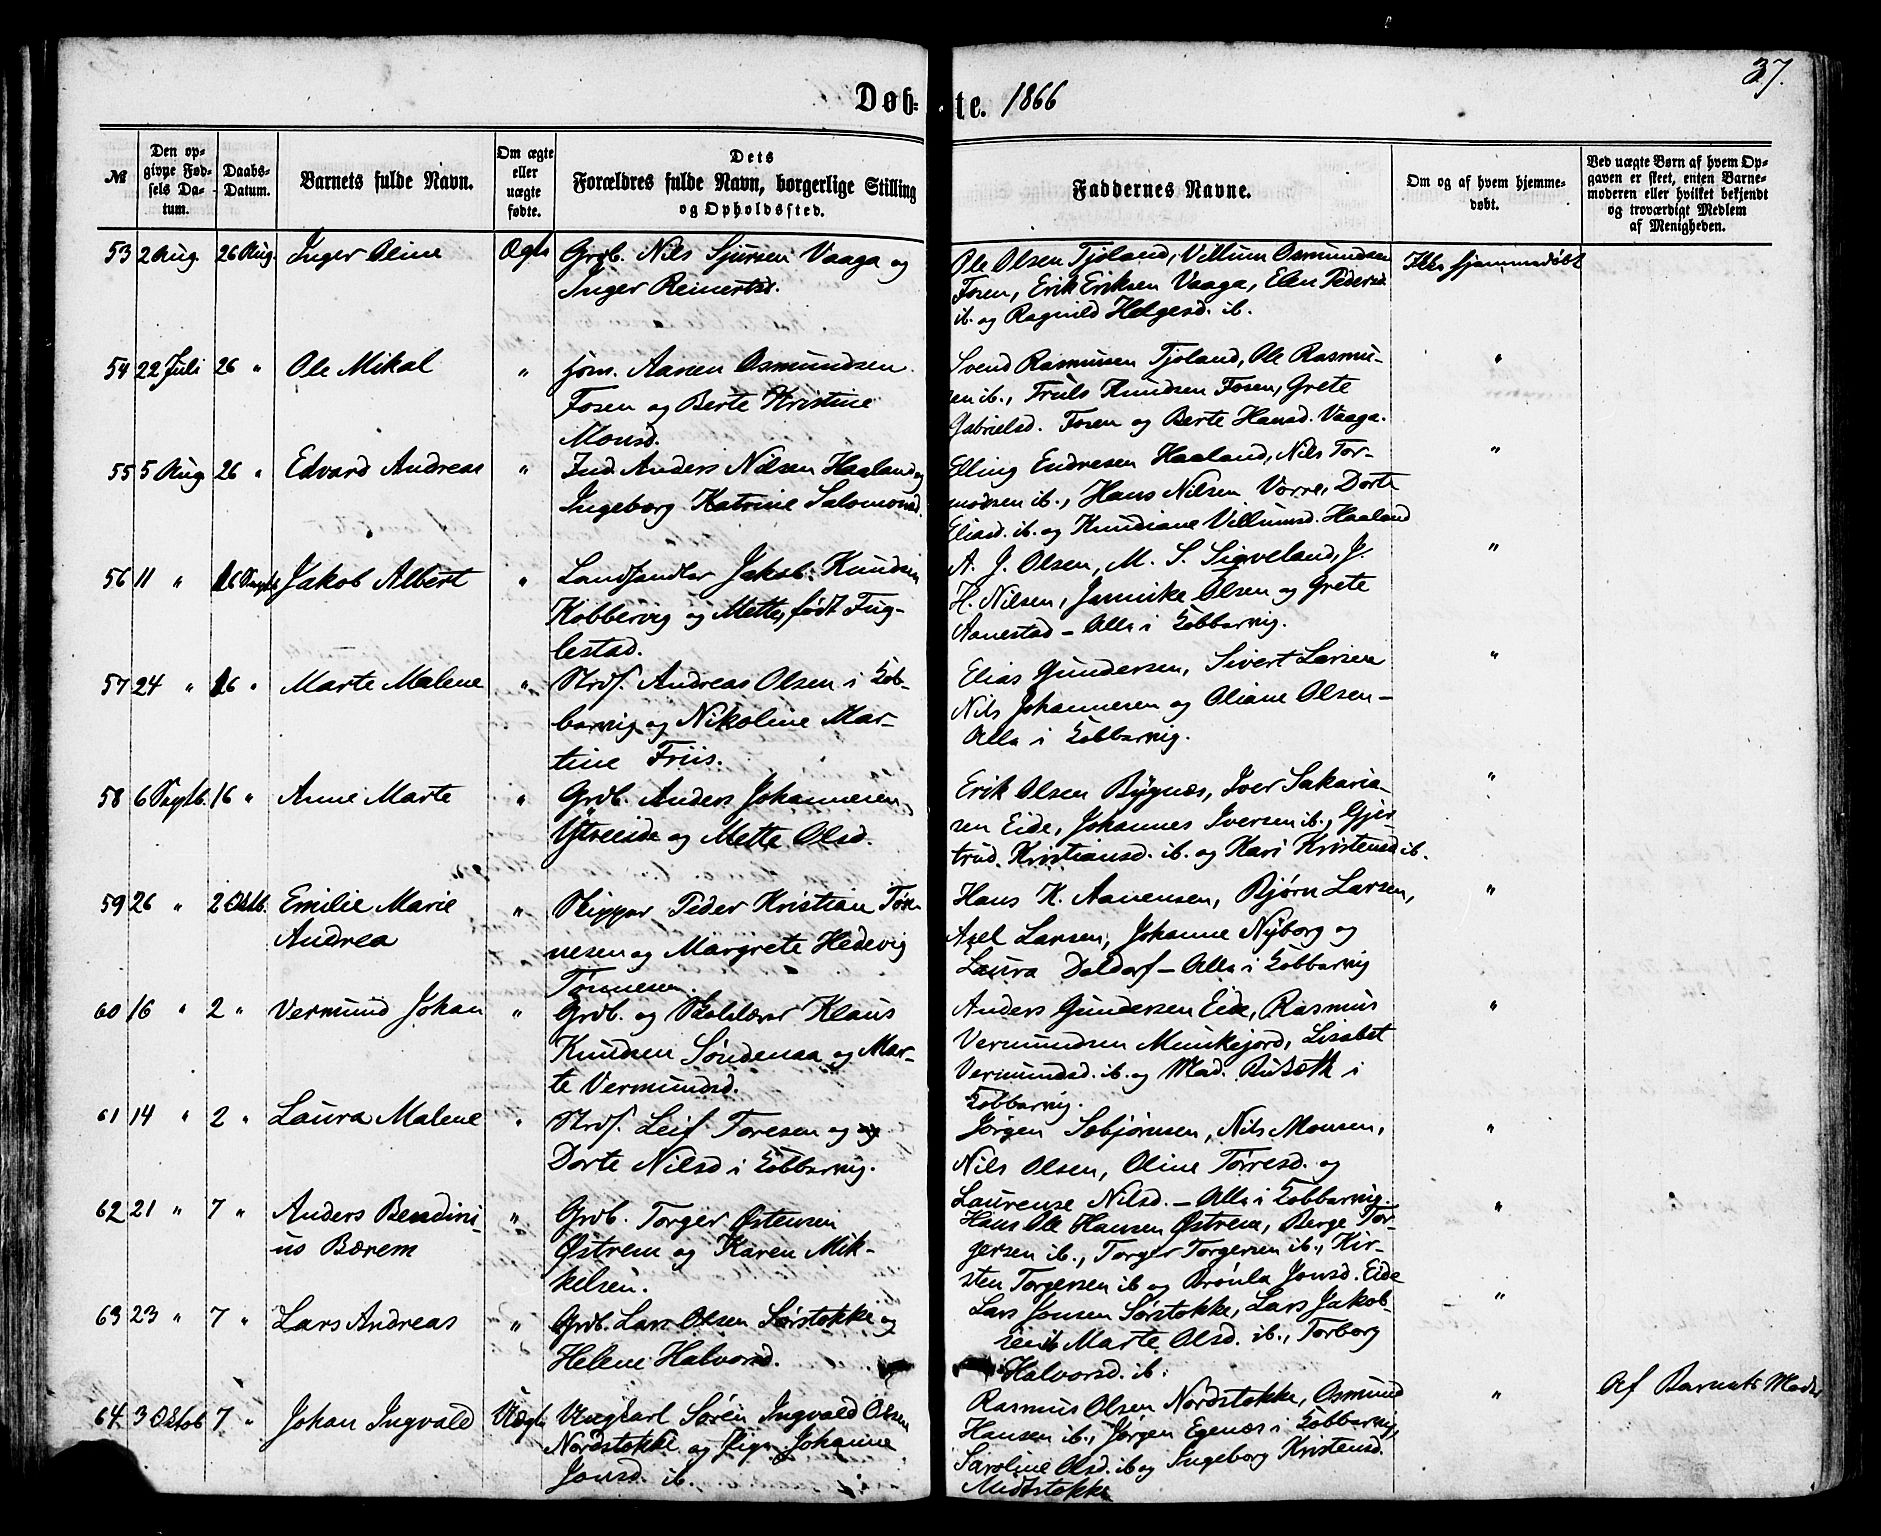 37.
Døbte. 1866
№
Den opgivne Fødsels Datum.
Daabs-Datum.
Barnets fulde Navn.
Om ægte eller uægte fødte.
Dets Forældres fulde Navn, borgerlige Stilling og Opholdssted.
Faddernes Navne.
Om og af hvem hjemmedøbt.
Ved uægte Børn af hvem Opgaven er skeet, enten Barnemoderen eller hvilket bekjendt og troværdigt Medlem af Menigheden.
53 2 Aug. 26 Aug. Inger Oline Ægte Grdb. Nils Sjursen Vaaga og
Inger Reinertsd.
Ole Olsen Tjoland, Villum Osmundsen
Fosen, Erik Eriksen Vaaga, Elen Pedersd.
ib. og Ragnild Helgesd. ib.
Ikke hjemmedøbt
54 22 Juli 26 " Ole Mikal " Hsm. Aanen Osmundsen
Fosen og Berte Kristine
Monsd.
Svend Rasmusen Tjoland, Ole Rasmu-
sen ib., Truls Knudsen Fosen, Grete
Gabrielsd. Fosen og Berte Hansd. Vaaga.
"
55 5 Aug. 26 " Edvard Andreas " Ind. Anders Nilsen Haaland og
Ingeborg Katrine Salomonsd.
Elling Endresen Haaland, Nils Tor-
modsen ib., Hans Nilsen Vorre, Dorte
Eliasd. ib. og Knudiane Villumsd. Haaland
"
56 11 " 16 Septb. Jakob Albert " Landhandler Jakob Knudsen
Kobbervig og Mette, født Fug-
lestad.
A. J. Olsen, M. S. Sigveland, J.
H. Nilsen, Jannike Olsen og Grete
Aanestad - Alle i Kobbervig.
"
57 24 " 16 " Marte Malene " Strdf. Andreas Olsen i Kob-
bervig og Nikoline Mar-
tine Friis.
Elias Gundersen, Sivert Larsen
Nils Johannesen og Oliane Olsen -
Alle i Kobbervig.
"
58 6 Septb. 16 " Anne Marte " Grdb. Anders Johannesen
Ytreeide og Mette Olsd.
Erik Olsen Bygnæs, Iver Sakaria-
sen Eide, Johannes Iversen ib., Gjer
trud. Kristiansd. ib. og Kari Kristensd ib.
"
59 26 " 2 Oktb. Emilie Marie
Andrea
" Skipper Peder Kristian Tøn-
nesen og Margrete Hedevig
Tønnesen.
Hans K. Aanensen, Bjørn Larsen,
Axel Larsen, Johanne Nyborg og
Laura Doldorf - Alle i Kobbervig
"
60 16 " 2 " Vermund Johan " Grdb. og Skolelærer Klaus
Knudsen Søndenaa og Mar-
te Vermundsd.
Anders Gundersen Eide, Rasmus
Vermundsen Munkejord, Lisabet
Vermundsd. ib. og Mad. Rusæth i
Kobbervig.
"
61 14 " 2 " Laura Malene " Strdf. Leif Toresen og og
Dorte Nilsd i Kobbervig.
Jørgen Sebjørnsen, Nils Monsen,
Nils Olsen, Oline Tørresd. og
Laurense Nilsd. - Alle i Kobbervig.
"
62 21 " 7 " Anders Bendini-
us Bærem
" Grdb. Torger Østensen
Østrem og Karen Mik-
kelsen.
Hans Ole Hansen Østrem, Berge Tor-
gersen ib., Torger Torgersen ib., Kir-
sten Torgersen ib og Brønla Jonsd. Eide
"
63 23 " 7 " Lars Andreas " Grdb. Lars Olsen Sørstokke og
Helene Halvorsd.
Lars Jonsen Sørstokke, Lars Jakob-
sen ib Marte Olsd. ib., Torborg
Halvorsd. ib.
"
64. 3 Oktob 7 " Johan Ingvald Uægte Ungkarl Søren Ingvald Olsen
Nordstokke og Pige Johanne
Jonsd. ib.
Rasmus Olsen Nordstokke, Osmund
Hansen ib., Jørgen Egenæs i Kobbervig,
Saroline Olsd. ib og Ingeborg Kristensd.
Midtstokke
"
Af Barnets Moder